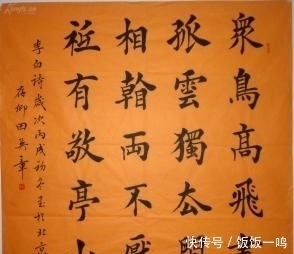 衆鳥高飛
孤雲獨去閒
相兩不厭
衹有敬亭山
李白詩歲次丙戌初冬於北京
存卿田英章
快传号/饭饭一鸣